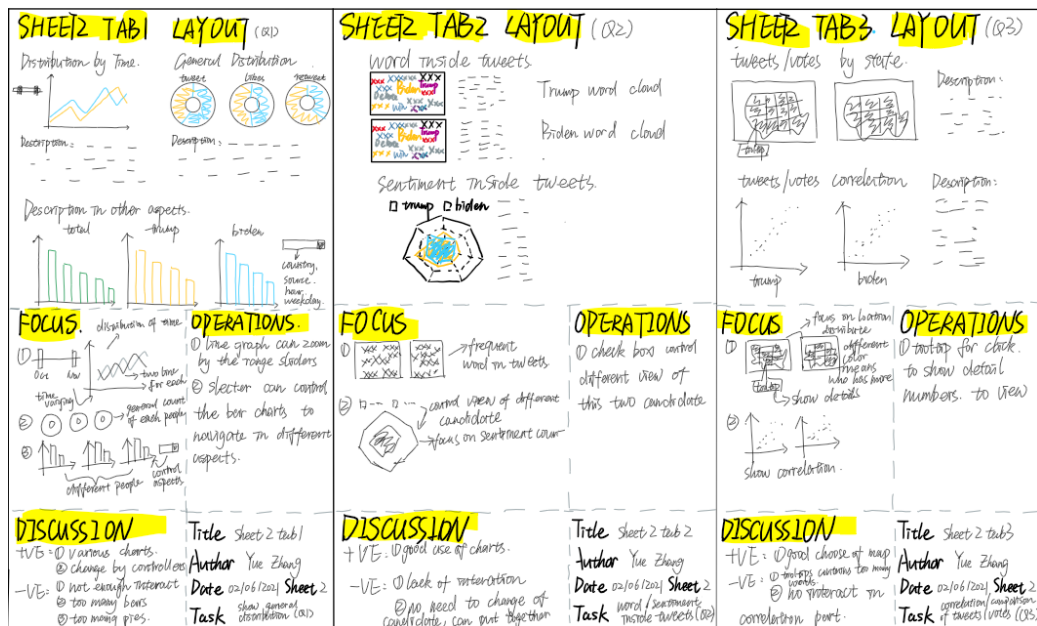 SHEET2 TAB1 LAYOUT (Q1)
Distribution by Time.
General Distribution
tweet
likes
retweet
Description:
Description:
Description in other aspects.
total
trump
biden
country,
source.
hour,
weekday.
FOCUS.
distribution of time
①
Oct
Nov
time
varying
two line
for each
②
general count
of each people
③
different people
control
aspects
OPERATIONS.
① line graph can zoom
by the range sliders
② slecter can control
the bar charts to
navigate in different
aspects.
DISCUSSION
+VE: ① various charts.
② change by controllers
-VE: ① not enough interact
② too many bars
③ too many pies.
Title Sheet 2 tab1
Author Yue Zhang
Date 02/06/2021 Sheet 2
Task show general
distribution (Q1)
SHEET2 TAB2 LAYOUT (Q2)
Word inside tweets.
xxx
Biden
Trump
Debate
Win
xxx
Biden
Trump
Debate
Win
Trump word cloud
Biden word cloud
sentiment inside tweets.
trump
biden
FOCUS
①
frequent
word in tweets
②
control view of different
candidate
focus on sentiment coun-
OPERATIONS
① check box control
different view of
this two candidate
DISCUSSION
+VE: ① good use of charts.
-VE: ① lack of interation
② no need to change of
candidate, can put together
Title Sheet 2 tab2
Author Yue Zhang
Date 02/06/2021 Sheet 2
Task word/sentiment
inside tweets (Q2)
SHEET2 TAB3 LAYOUT (Q3)
tweets/votes by state.
tooltip
Description:
tweets/votes correlation
Description:
trump
biden
FOCUS
focus on location
distribute
①
different
color
means
who has more
tooltip
show details
②
show correlation.
OPERATIONS
① tooltip for click.
to show detail
numbers. to view
DISCUSSION
+VE: ① good choose of map
-VE: ① tooltips contains too many
words.
② no interact in
correlation part.
Title Sheet 2 tab3
Author Yue Zhang
Date 02/06/2021 Sheet 2
Task correlation/comparison
of tweets/votes (Q3)